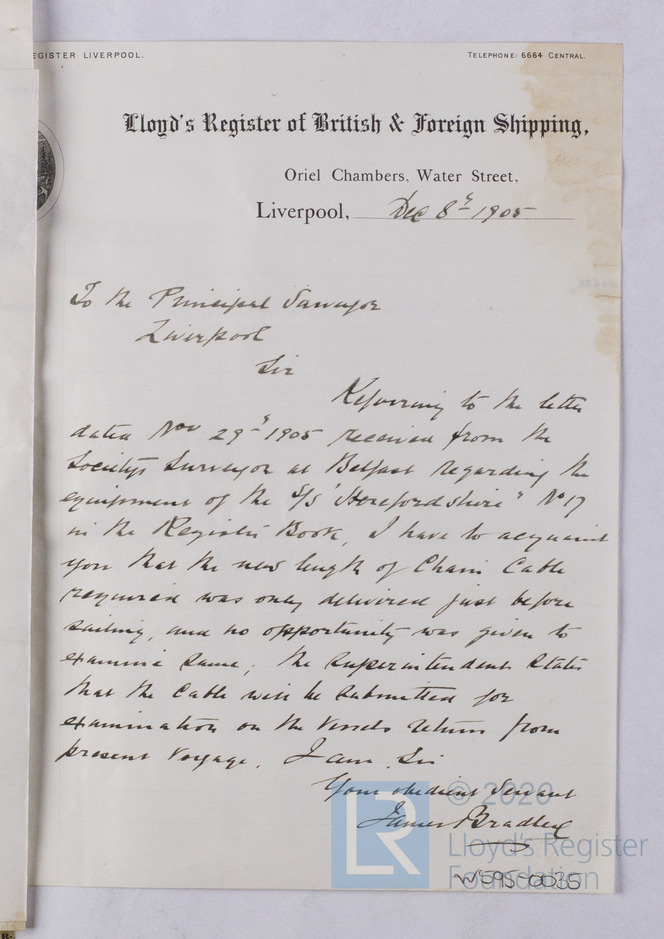 EGISTER LIVERPOOL.
TELEPHONE: 6664 CENTRAL.
Lloyd's Register of British & Foreign Shipping,
Oriel Chambers, Water Street,
Liverpool, Dec 8th 1905
To the Principal Surveyor
Liverpool
Sir
Referring to the letter
dated Nov 29th 1905 received from the
Societys Surveyor at Belfast regarding the
equipment of the S/S "Herefordshire" No 17
in the Register Book, I have to acquaint
you that the new length of Chain Cable
required was only delivered just before
sailing, and no opportunity was given to
examine same; the Superintendent states
that the Cable will be submitted for
examination on the Vessels return from
present voyage. I am, Sir
Your obedient Servant
James Bradley
© 2020
Lloyd's Register
Foundation
LR
W595-0035